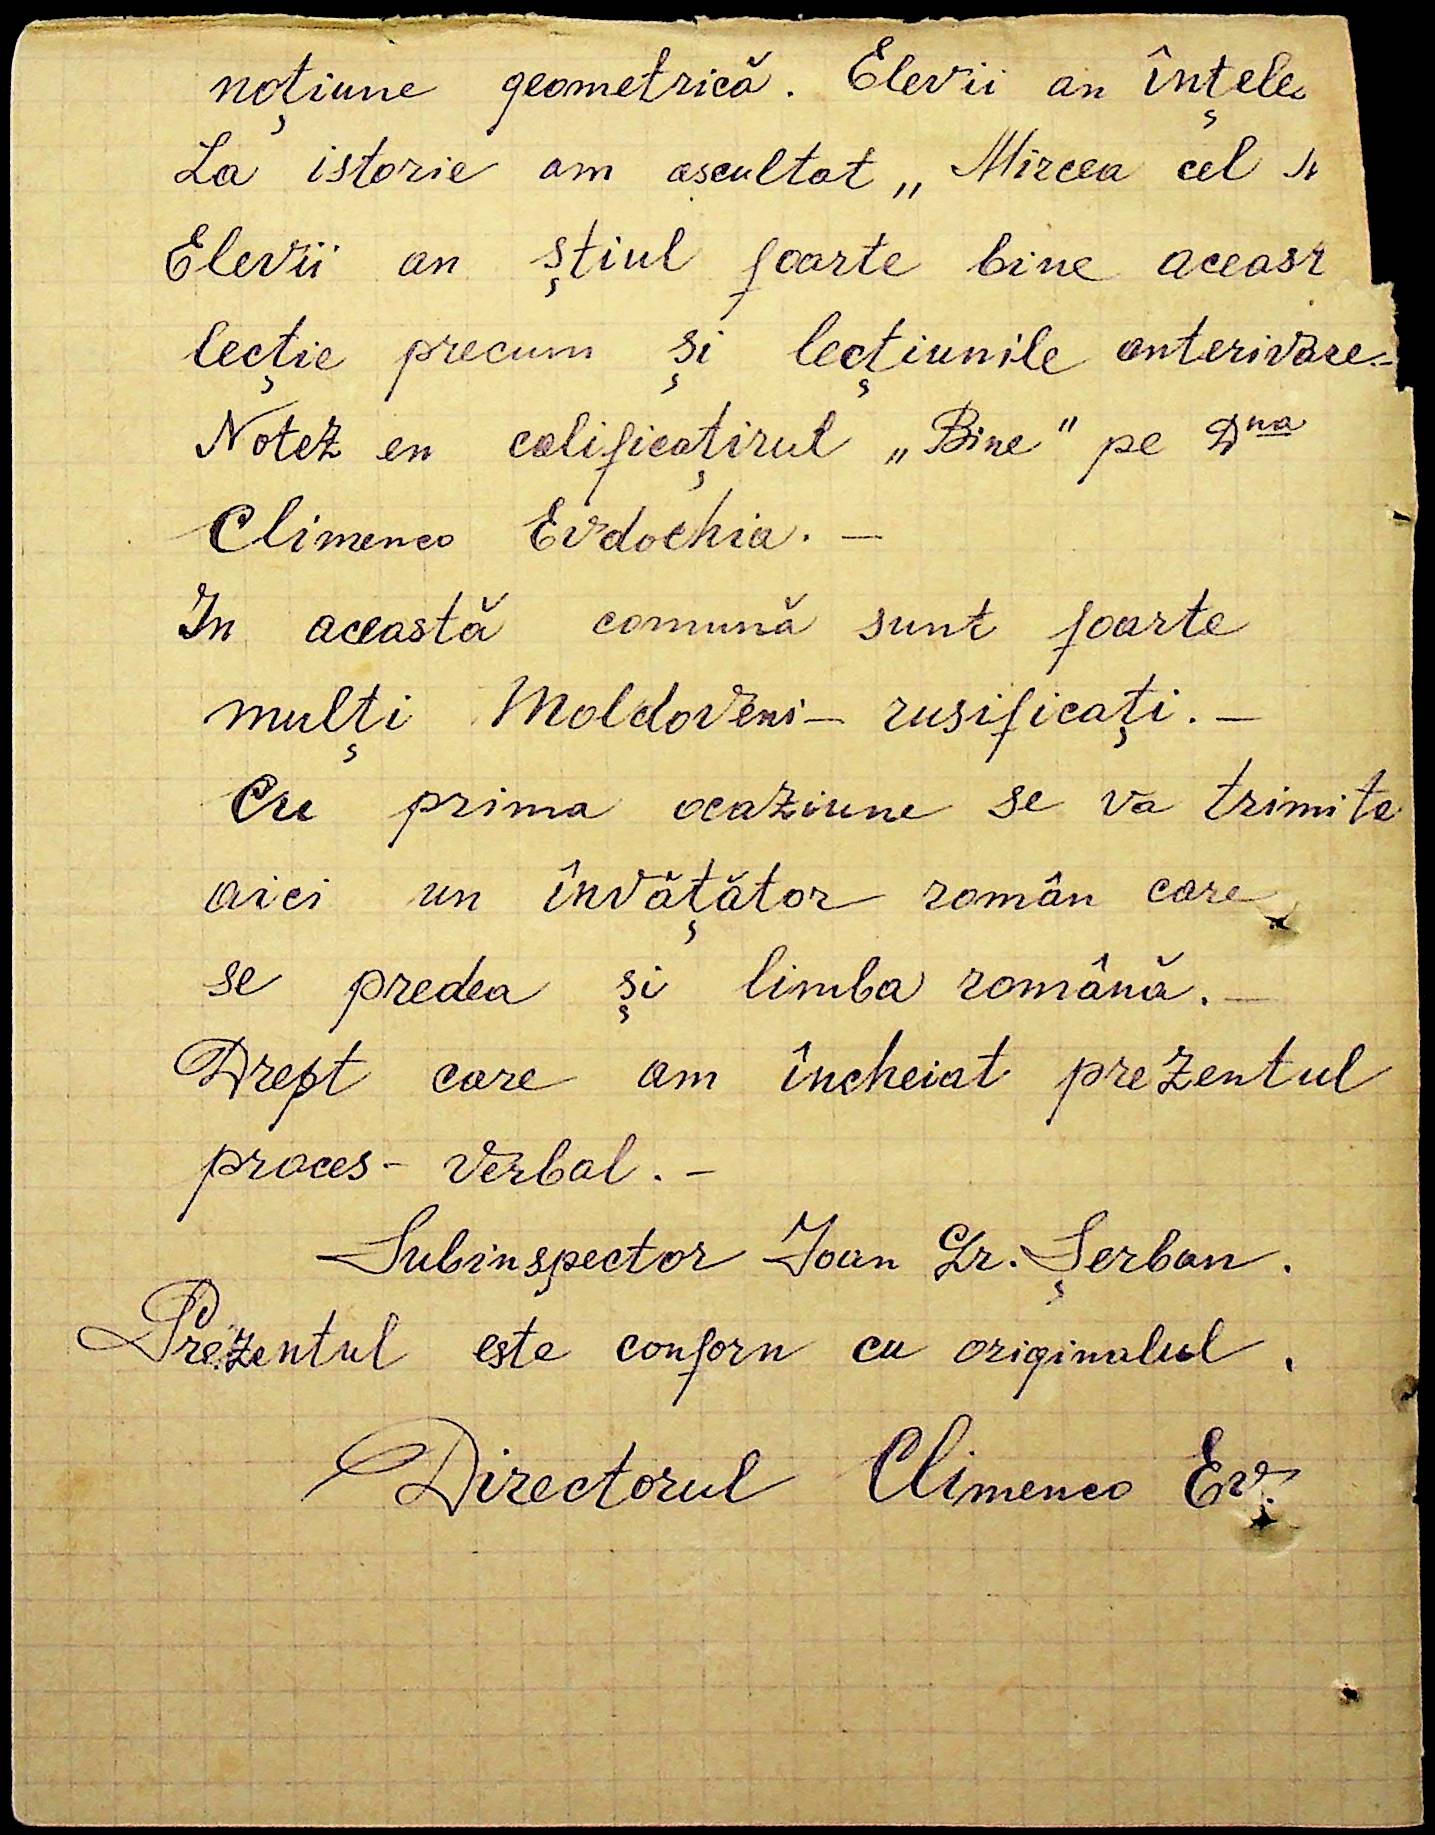 noțiune geometrică. Elevii an înțele
La istorie am ascultat „Mircea cel
Elevii an știul foarte bine aceast
lecție precum și lecțiunile anterivare.-
Notez en calificațirul „Bine" pe Dna
Climenco Evdochia. —
In această comună sunt foarte
mulți Moldoveni- rusificați. —
Cu prima ocaziune se va trimite
aici un învățător român care
se predea și limba română. —
Drept care am încheiat prezentul
proces- verbal. —
Subinspector Ioan Gr. Șerban.
Prezentul este conforn cu originalul.
Directorul Climenco Ev.